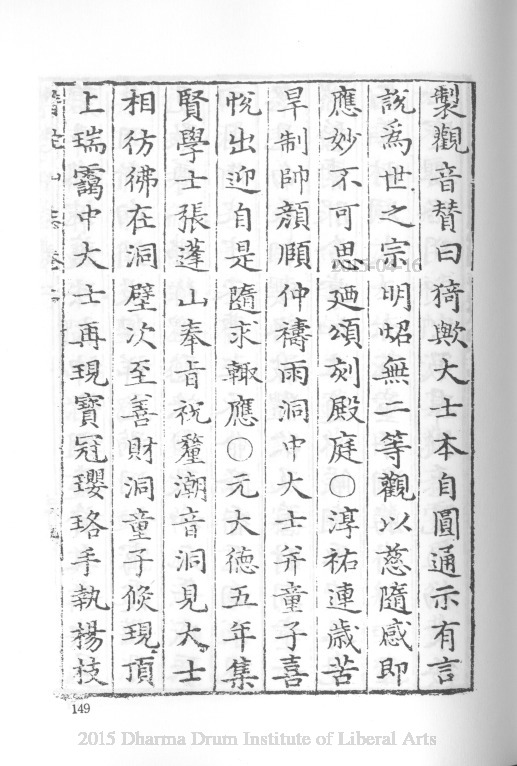 製觀音贊曰猗歟大士本自圓通示有言
說爲世之宗明炤無二等觀以慈隨感即
應妙不可思廼頌刻殿庭○淳祐連歲苦
旱制帥顏頤仲禱雨洞中大士并童子喜
悅出迎自是隨求輙應○元大德五年集
賢學士張蓬山奉旨祝釐潮音洞見大士
相彷彿在洞壁次至善財洞童子倐現頂
上瑞靄中大士再現寶冠瓔珞手執楊枝
149
2015 Dharma Drum Institute of Liberal Arts